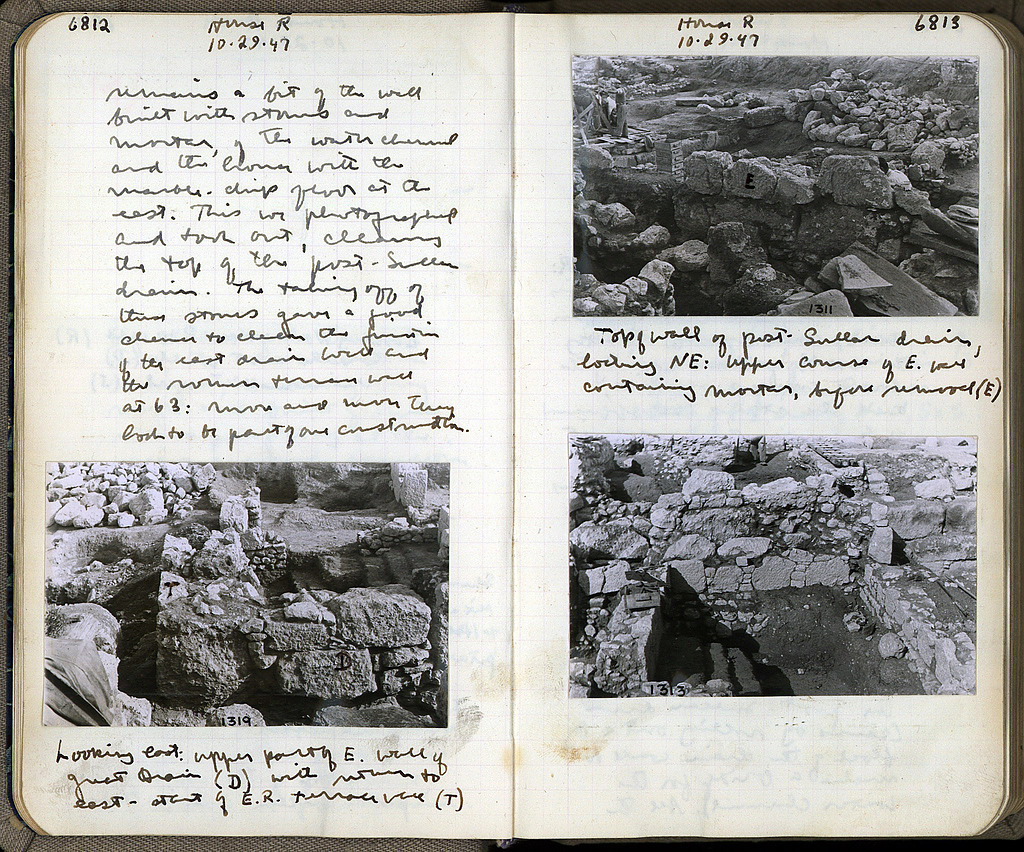 6812
House R
10·29·47
remains a bit of the wall
built with stones and
mortar, of the water channel
and the house with the
marble-chip floor at the
east. This we photographed
and took out, cleaning
the top of the post-Sullan
drain. The taking off of
these stones gave a good
chance to clean the junction
of the east drain wall and
the roman terrace wall
at 63: more and more they
look to be part of one construction.
D
1319
Looking east: upper part of E. wall of
great Drain (D) with return to
east - start of E.R. terrace wall (T)
House R
10·29·47
6813
E
1311
Top of wall of post-Sullan drain,
looking NE: upper course of E. wall
containing mortar, before removal (E)
1313